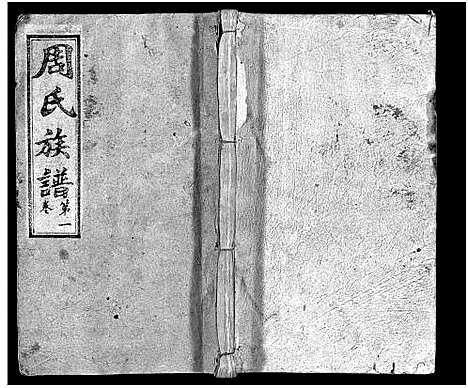 周氏族譜
卷第一